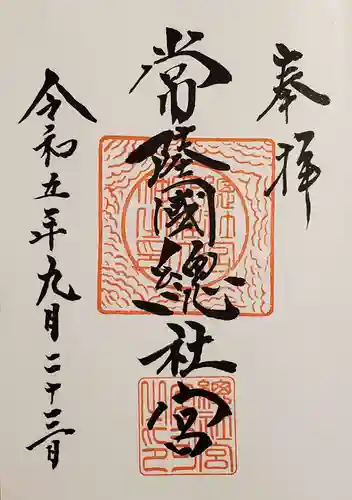 奉拝
常陸國總社宮
令和五年九月二十三日